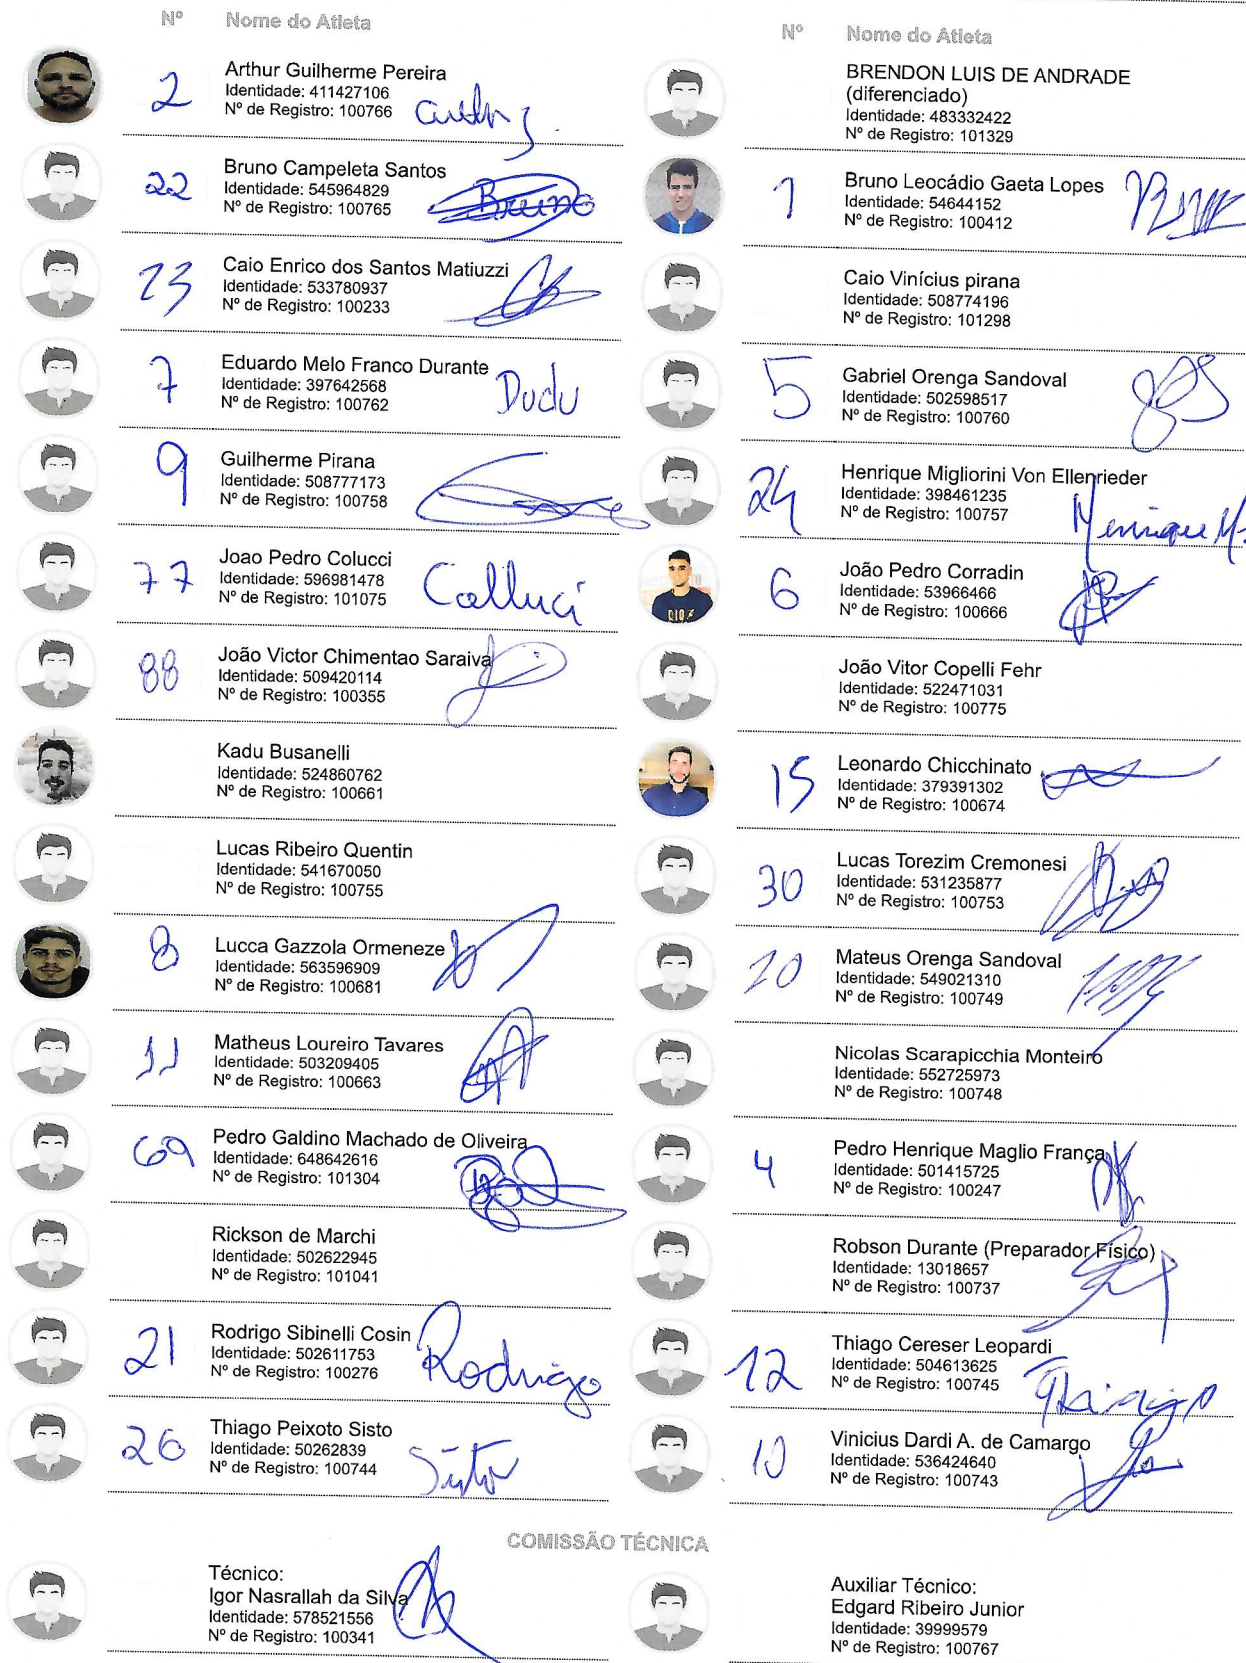 Nº Nome do Atleta
2 Arthur Guilherme Pereira
Identidade: 411427106
Nº de Registro: 100766
22 Bruno Campeleta Santos
Identidade: 545964829
Nº de Registro: 100765 Bruno
23 Caio Enrico dos Santos Matiuzzi
Identidade: 533780937
Nº de Registro: 100233
7 Eduardo Melo Franco Durante
Identidade: 397642568
Nº de Registro: 100762 Dudu
9 Guilherme Pirana
Identidade: 508777173
Nº de Registro: 100758
77 Joao Pedro Colucci
Identidade: 596981478
Nº de Registro: 101075 Colluci
88 João Victor Chimentao Saraiva
Identidade: 509420114
Nº de Registro: 100355
Kadu Busanelli
Identidade: 524860762
Nº de Registro: 100661
Lucas Ribeiro Quentin
Identidade: 541670050
Nº de Registro: 100755
8 Lucca Gazzola Ormeneze
Identidade: 563596909
Nº de Registro: 100681
11 Matheus Loureiro Tavares
Identidade: 503209405
Nº de Registro: 100663
69 Pedro Galdino Machado de Oliveira
Identidade: 648642616
Nº de Registro: 101304
Rickson de Marchi
Identidade: 502622945
Nº de Registro: 101041
21 Rodrigo Sibinelli Cosin
Identidade: 502611753
Nº de Registro: 100276 Rodrigo
26 Thiago Peixoto Sisto
Identidade: 50262839
Nº de Registro: 100744
Nº Nome do Atleta
BRENDON LUIS DE ANDRADE
(diferenciado)
Identidade: 483332422
Nº de Registro: 101329
1 Bruno Leocádio Gaeta Lopes
Identidade: 54644152
Nº de Registro: 100412
Caio Vinícius pirana
Identidade: 508774196
Nº de Registro: 101298
5 Gabriel Orenga Sandoval
Identidade: 502598517
Nº de Registro: 100760
24 Henrique Migliorini Von Ellenrieder
Identidade: 398461235
Nº de Registro: 100757 Henrique M.
6 João Pedro Corradin
Identidade: 53966466
Nº de Registro: 100666
João Vitor Copelli Fehr
Identidade: 522471031
Nº de Registro: 100775
15 Leonardo Chicchinato
Identidade: 379391302
Nº de Registro: 100674
30 Lucas Torezim Cremonesi
Identidade: 531235877
Nº de Registro: 100753
20 Mateus Orenga Sandoval
Identidade: 549021310
Nº de Registro: 100749
Nicolas Scarapicchia Monteiro
Identidade: 552725973
Nº de Registro: 100748
4 Pedro Henrique Maglio França
Identidade: 501415725
Nº de Registro: 100247
Robson Durante (Preparador Físico)
Identidade: 13018657
Nº de Registro: 100737
12 Thiago Cereser Leopardi
Identidade: 504613625
Nº de Registro: 100745 Thiago
10 Vinicius Dardi A. de Camargo
Identidade: 536424640
Nº de Registro: 100743
COMISSÃO TÉCNICA
Técnico:
Igor Nasrallah da Silva
Identidade: 578521556
Nº de Registro: 100341
Auxiliar Técnico:
Edgard Ribeiro Junior
Identidade: 39999579
Nº de Registro: 100767